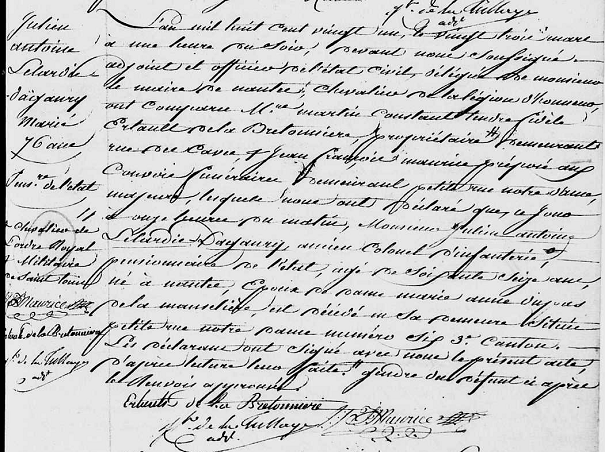 Julien
antoine
Lelardic
Dagaury
Marié
76 ans
Pens.re de l'état
H
chevalier de
l'ordre Royal
& Militaire
de Saint Louis
Maurice
de la Bretonniere
de la Tullaye
adt
de la Tullaye
adt
L'an mil huit cent vingt un, le vingt trois mars
à une heure du soir, devant nous soussigné
adjoint et officier de l'état civil, délégué de monsieur
le maire de nantes, chevalier de la légion d'honneur,
ont comparu M. martin constant fidèle
Ertault de la Bretonniere, propriétaire, demeurant
rue des Caves, & Jean françois maurice préposé aux
Convois funéraires demeurant petite rue notre dame,
majeurs, lesquels nous ont déclaré que, ce jour
à onze heures du matin, Monsieur Julien antoine
Lelardic Dagaury, ancien Colonel d'infanterie,
pensionnaire de l'état, âgé de soixante seize ans,
né à nantes, Epoux de dame marie anne
de la mancliere est décédé en sa demeure située
petite rue notre dame numéro six 3e Canton.
Les déclarans ont signé avec nous le présent acte,
d'après lecture leur faite. H gendre du défunt ci après
les renvois approuvés
Ertault de la Bretonniere
de la Tullaye
adt
Maurice